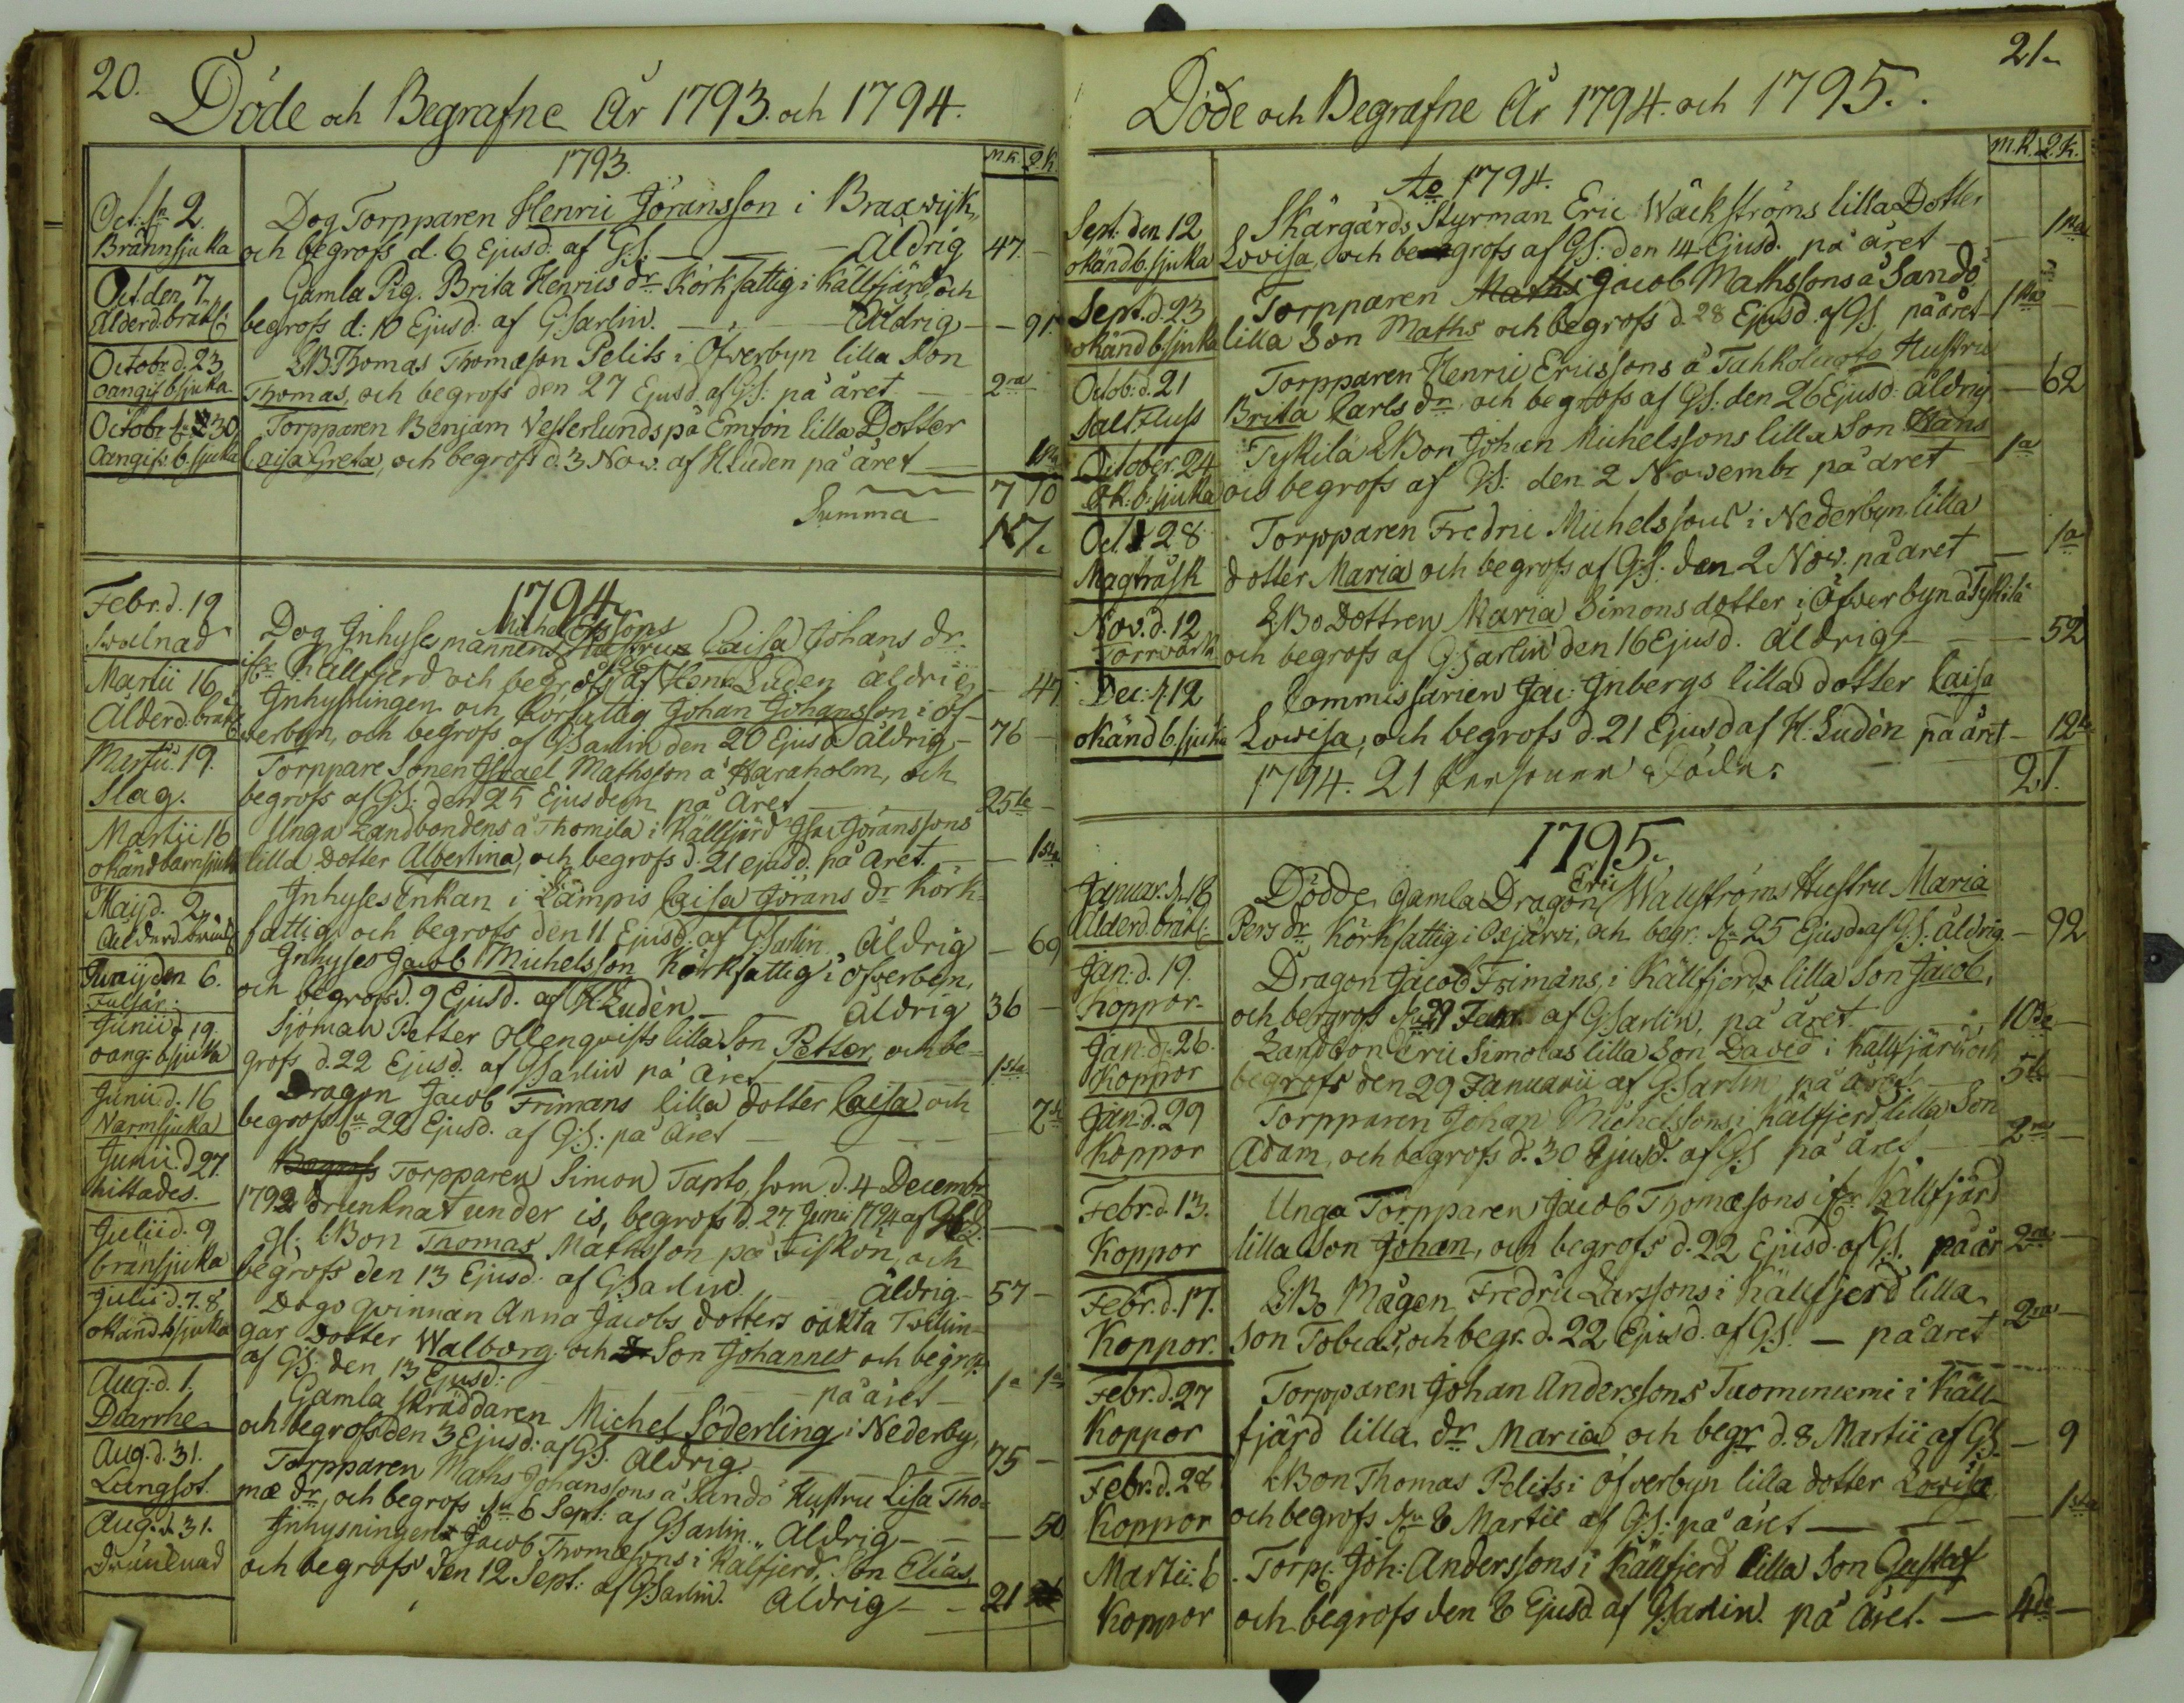 20.
Döde och Begrafne År 1793. och 1794.
M.K. Q.K.
1793.
Oct. 2. Dog Torpparen Henric Jöransson i Braxwijk,
Brännsjuka och begrofs d. 6 Ejusd: af G.S. — Åldrig 47 —
Oct. den 7. Gamla Pig. Brita Henrics dr. Körkfattig i Källfjärd, och
Ålderd. bräkl: begrofs d: 10 Ejusd. af G: Sarlin. — Åldrig — 91.
Octob: d. 23 LB Thomas Thomæson Pelits i Öfverbyn lilla Son
oangif. b.sjuka Thomas, och begrofs den 27 Ejusd. af G.S: på året — 2ra
Octobr. 30 Torpparen Benjam Vesterlunds på Emsön lilla Dotter
Oangif: b. sjuka Caisa Greta, och begrofs d. 3 Nov. af H Luden på året — 1sta
7 10
Summa 17.
1794.
Michelssons
Febr. d. 19 Dog Inhyses mannens Hustru Caisa Johans dr.
Swalnad ifr. Källfjerd och begrofs af Hen: Luden åldrig — 47
Martii 16 Inhysningen och Körfattig Johan Johansson i Öf-
Ålderd. bräkl werbyn, och begrofs af G Sarlin den 20 Ejusd åldrig — 76 —
Martii. 19. Torppare Sonen Israel Mathsson å Haraholm, och
Slag. begrofs af G.S: den 25 Ejusdem på Året — 25te —
Martii 16 Unga Landbondens å Thomila i Källfjärd Isac Joranssons
okänd barnsjuk lilla Dotter Albertina, och begrofs d. 21 ejusd. på Året. — 1sta
Maij d. 2. Inhyses Enkan i Lampis Caisa Jörans dr Körk-
Ålderd. bräckl fattig, och begrofs den 11 Ejusd: af G Sarlin. Åldrig — 69
Junij den 6. Inhyses Jacob Michelsson Körkfattig i Öfverbyn,
och begrofs d. 9 Ejusd. af H Ludén — Åldrig 36 —
Junii d 19. Sjöman Petter Ollenqvists lilla Son Petter, och be-
oang: b.sjuka grofs d. 22 Ejusd. af G Sarlin på Året — 1sta
Junii d. 16 Dragon Jacob Frimans lilla Dotter Caisa och
Narmsjuka begrofs 22 Ejusd. af G:S: på Året — 7de
Junii. d 27. Begrofs Torpparen Simon Tapto, som d. 4 Decembr
hittades. 1792 drunknat under is, begrofs d. 27. Junii 1794 af
Julii d. 9 gl: LBon Thomas Mathsson på Fiskön, och
bränsjuka begrofs den 13 Ejusd. af G Sarlin. — Åldrig — 57 —
Julii d. 7. 8, Dogo qvinnan Anna Jacobs dotters oäkta Twillin-
okänd b.sjuka gar Dotter Walborg och Son Johannes och begrof:
af G.S: den 13 Ejusd: — på året — 1a 1a
Aug: d. 1. Gamla Skräddaren Michel Söderling i Nederby,
Diarrhe och begrofs den 3 Ejusd: af G.S. Åldrig. — 75 —
Aug. d. 31. Torpparen Maths Johanssons å Sandö Hustru Lisa Tho-
Lungsot. mæ dr, och begrofs 6 Sept: af G Sarlin. Åldrig — 50
Aug: d. 31. Inhysningens Jacob Thomæsons i Kälfjerd, Son Elias,
Drunknad och begrofs den 12 Sept: af G Sarlin. Åldrig — 21
21.
Döde och Begrafne År 1794. och 1795.
M.K. Q.K.
Ao 1794.
Sept: den 12 Skärgårds Styrman Eric Wäckströms lilla Dotter
okänd b. sjuka Lovisa, och begrofs af G.S: den 14 Ejusd. på året — 1sta
Sept. d. 23 Torpparen Maths Jacob Mathssons å Sandö
okänd b.sjuka lilla Son Maths och begrofs d. 28 Ejusd. af G.S. på året 1sta —
Octob: d. 21 Torpparen Henric Ericssons å Tahkoluoto Hustru
Saltfluss Brita Carls dr. och begrofs af G.S: den 26 Ejusd: åldrig — 62
October. 24 Tykilä LBon Johan Michelssons lilla Son Hans
Ok: b: sjuka och begrofs af G.S: den 2 Novembr på året — 1a
Oct. 28. Torpparen Fredric Michelssons i Nederbyn lilla
Magträsk dotter Maria och begrofs af G.S. den 2 Nov. på året — 1a
Nov. d. 12 LBo Dottren Maria Simons dotter i Öfverbyn å Tykilä
Torrvärk och begrofs af G Sarlin den 16 Ejusd. Åldrig — 52
Dec: d. 12 Commissarien Jac: Inbergs lilla dotter Caisa
okänd b. sjuka Lovisa, och begrofs d. 21 Ejusd af H. Ludén på året — 12te
1794. 21 Personer döde. 21.
1795.
Eric
Januar. d. 18 Dödde Gamla Dragon Wallströms Hustru Maria
Ålderd. bräkl: Pers dr, Körkfattig i Oxjärvi, och begr: 25 Ejusd. af G.S: åldrig. — 92
Jan: d. 19. Dragon Jacob Frimans, i Källfjerd, lilla Son Jacob,
Koppor. och begrofs 29 Jan. af G Sarlin, på året — 10de —
Jan: d. 26. Landbon Eric Simolas lilla Son David i Källfjärd och
Koppor begrofs den 29 Januarii af G Sarlin på året. — 5te —
Jan: d. 29 Torpparen Johan Michelssons i Kälfjerd lilla Son
Koppor Adam, och begrofs d. 30 Ejusd. af G.S på året. — 2ra —
Febr. d. 13. Unga Torpparen Jacob Thomæsons ifr. Källfjärd
Koppor lilla Son Johan, och begrofs d. 22 Ejusd. af G.S. på år 2ra —
Febr. d. 17. LBo Mågen Fredric Larssons i Källfjerd lilla
Koppor. Son Tobias, och begr. d. 22 Ejusd. af G.S. — på året 2ra —
Febr. d. 27 Torpparen Johan Anderssons Tuominiemi i Käll-
Koppor fjärd lilla dr Maria och begr d. 8 Martii af G.S. — 9
Febr. d. 28 LBon Thomas Pelits i Öfverbyn lilla dotter Lovisa
Koppor och begrofs 8 Martii af G.S: på året — 1sta
Martii. 6. Torp: Joh: Anderssons i Källfjerd lilla Son Gustaf
Koppor och begrofs den 8 Ejusd. af G Sarlin. på året. — 4de —